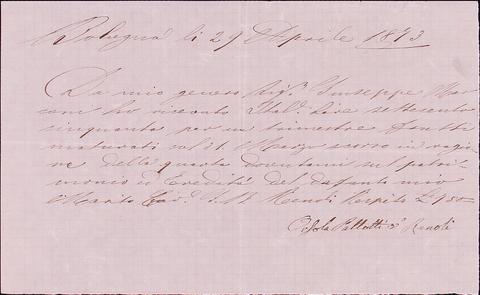 Bologna li 29 Aprile 1873
Da mio genero Sig.r Giuseppe Mar
coni ho ricevuto Ital.e Lire settecento
cinquanta per un trimestre frutti
maturati nel 31 Marzo scorso in ragio
ne della quota dovutami sul patri
monio ed Eredità del defunto mio
Marito Cav.r Renoli
Pallotti Renoli